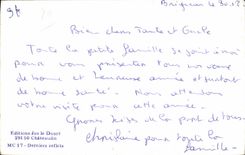 le 30.12
Bien chers Tante et Oncle
Toute la petite famille se joint à moi
pour vous présenter tous nos vœux
de bonne et heureuse année et surtout
de bonne santé. Nous attendons
votre visite pour cette année.
Grosses bises de la part de tous
pour toute la
famille
Editions
29150 Châteaulin
MC 17 - Derniers reflets